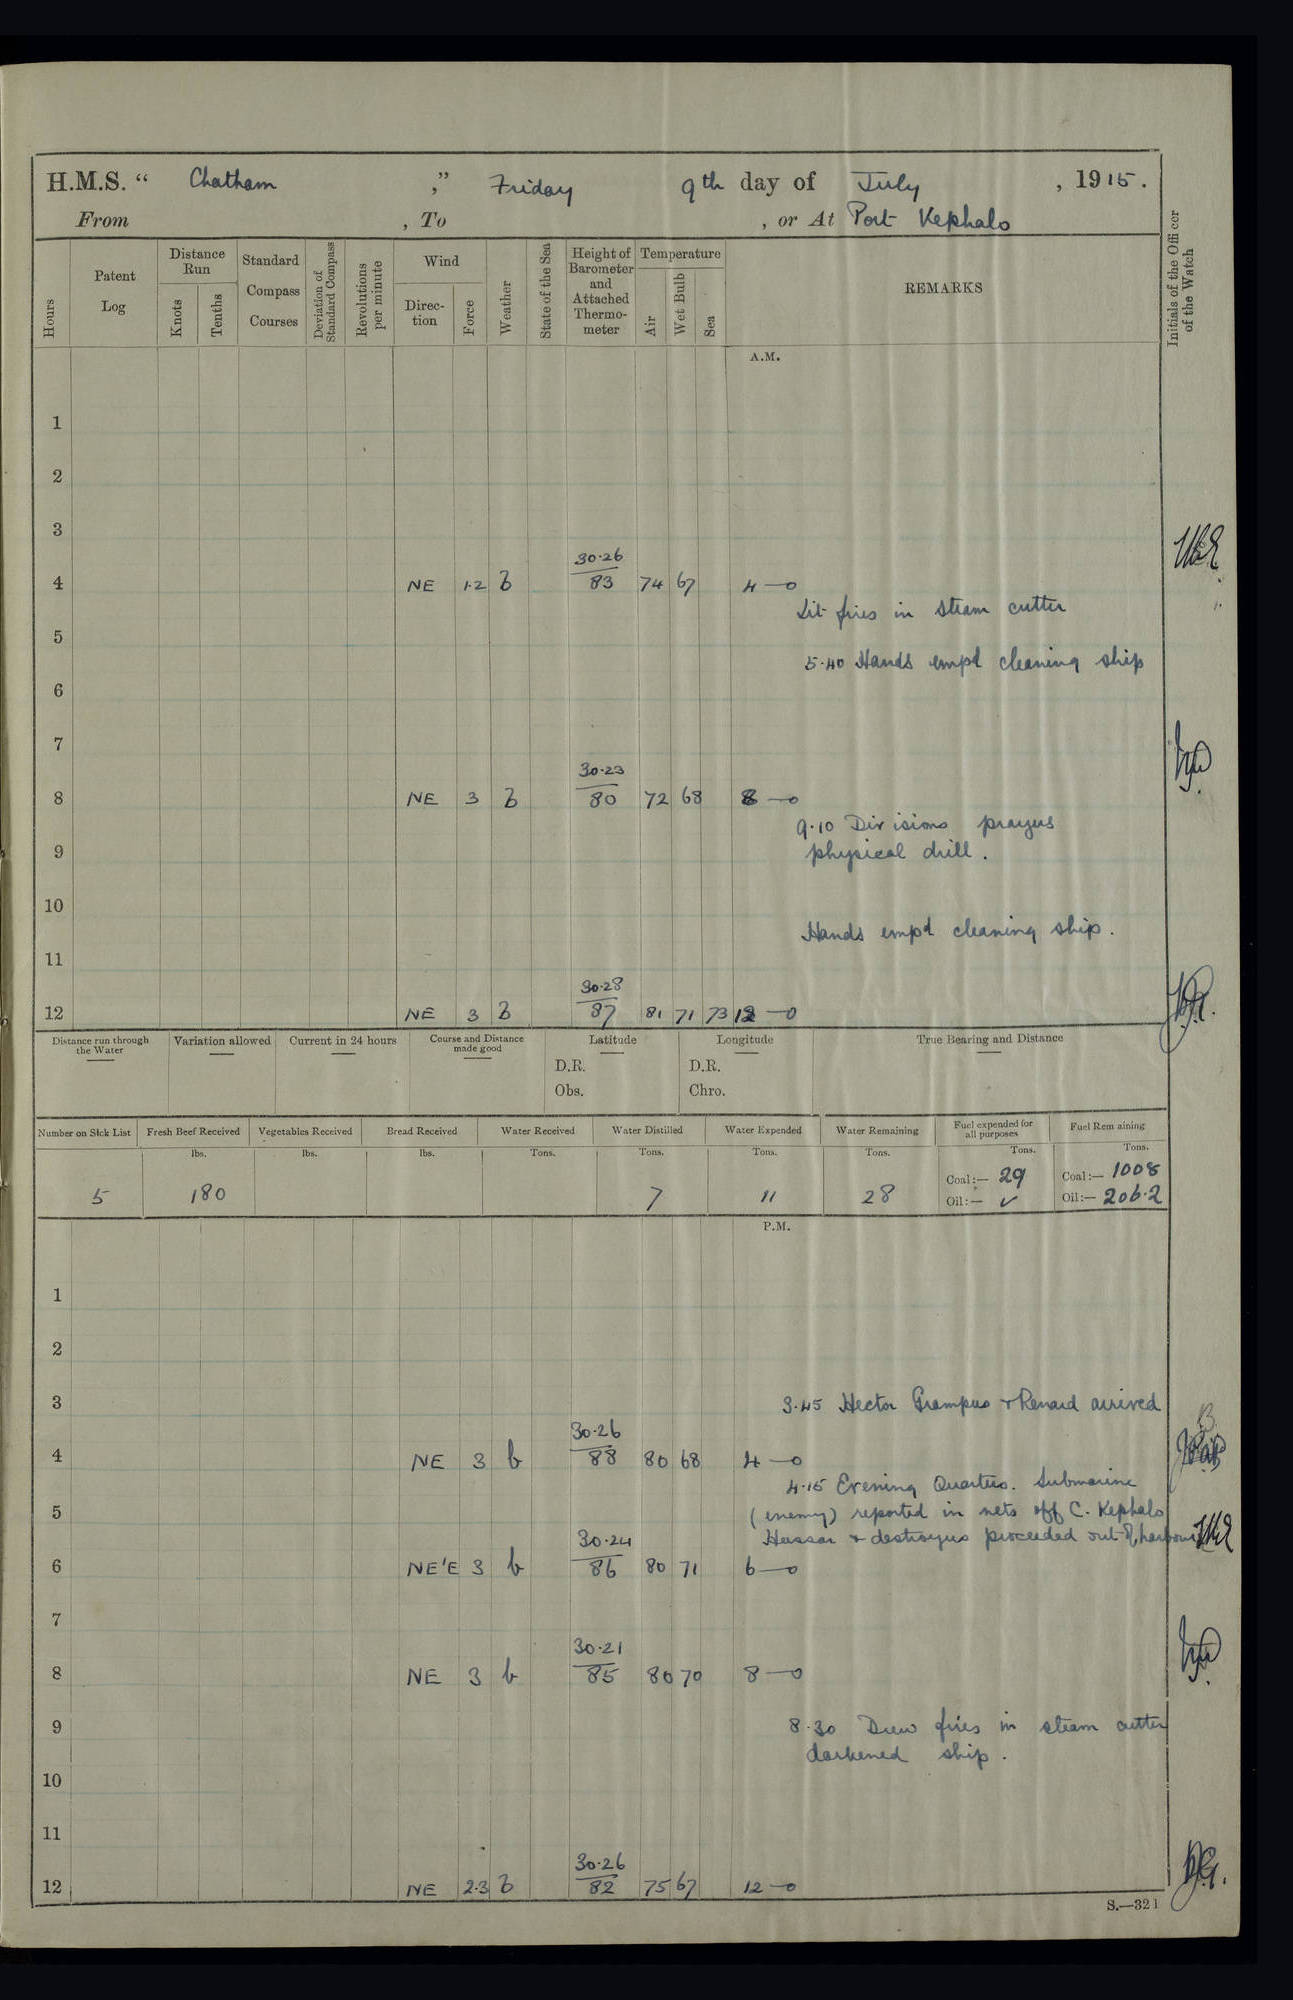 H.M.S. “ Chatham ,” Friday 9th day of July , 1915.
From , To , or At Port Kephalo
Hours
Patent Log
Distance Run
Knots
Tenths
Standard Compass Courses
Deviation of Standard Compass
Revolutions per minute
Wind
Direc-tion
Force
Weather
State of the Sea
Height of Barometer and Attached Thermo-meter
Temperature
Air
Wet Bulb
Sea
REMARKS
Initials of the Officer of the Watch
A.M.
1
2
3
30·26
4 NE 1·2 b 83 74 67 4 —o
Lit fires in steam cutter
5
5·40 Hands empd cleaning ship
6
7
30·23
8 NE 3 b 80 72 68 8 —o
9·10 Divisions prayers
9 physical drill.
10
Hands empd cleaning ship.
11
30·28
12 NE 3 b 87 81 71 73 12 —o
Distance run through the Water
Variation allowed
Current in 24 hours
Course and Distance made good
Latitude
D.R.
Obs.
Longitude
D.R.
Chro.
True Bearing and Distance
Number on Sick List
Fresh Beef Received
Vegetables Received
Bread Received
Water Received
Water Distilled
Water Expended
Water Remaining
Fuel expended for all purposes
Fuel Remaining
lbs. lbs. lbs. Tons. Tons. Tons. Tons. Tons. Tons.
Coal:— 29 Coal:— 1008
5 180 7 11 28 Oil:— ✓ Oil:— 206·2
P.M.
1
2
3 3·45 Hector Grampus + Renard arrived
30·26
4 NE 3 b 88 80 68 4 —o
4·15 Evening Quarters. Submarine
5 (enemy) reported in nets off C. Kephalo
30·24 Hussar + destroyers proceeded out of harbour
6 NE'E 3 b 86 80 71 6 —o
7
30·21
8 NE 3 b 85 80 70 8 —o
9 8·30 Drew fires in steam cutter
darkened ship.
10
11
30·26
12 NE 2·3 b 82 75 67 12 —o
S.—321